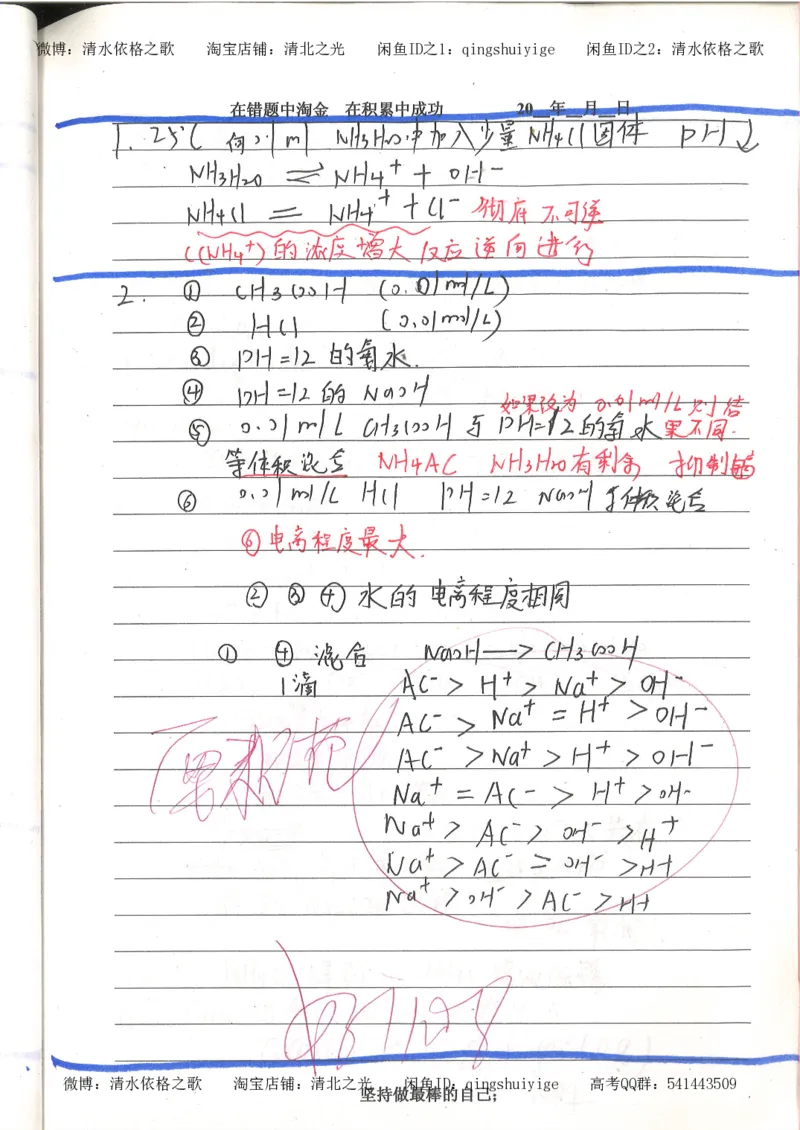 微博：清水依格之歌 淘宝店铺：清北之光 闲鱼ID之1：qingshuiyige 闲鱼ID之2：清水依格之歌
在错题中淘金 在积累中成功 20__年__月__日
1. 25℃ 向0.1ml NH3H2O中加入少量NH4Cl固体 PH↓
NH3H2O ⇌ NH4⁺ + OH⁻
NH4Cl = NH4⁺ + Cl⁻ 彻底 不可逆
C(NH4⁺)的浓度增大 反应逆向进行
2. ① CH3COOH (0.01ml/L)
② HCl (0.01mol/L)
③ PH=12 的氨水.
④ PH=12 的 NaOH
如果改为 0.01ml/L 则结
⑤ 0.01ml/L CH3COOH 与 PH=12的氨水 果不同.
等体积混合 NH4AC NH3H2O有剩余 抑制
⑥ 0.01ml/L HCl PH=12 NaOH 等体积混合
⑥电离程度最大.
② ③ ④ 水的电离程度相同
① ④ 混合 NaOH→CH3COOH
1滴 AC⁻ > H⁺ > Na⁺ > OH⁻
AC⁻ > Na⁺ = H⁺ > OH⁻
AC⁻ > Na⁺ > H⁺ > OH⁻
Na⁺ = AC⁻ > H⁺ > OH⁻
Na⁺ > AC⁻ > OH⁻ > H⁺
Na⁺ > AC⁻ = OH⁻ > H⁺
Na⁺ > OH⁻ > AC⁻ > H⁺
微博：清水依格之歌 淘宝店铺：清北之光 闲鱼ID：qingshuiyige 高考QQ群：541443509
坚持做最棒的自己；